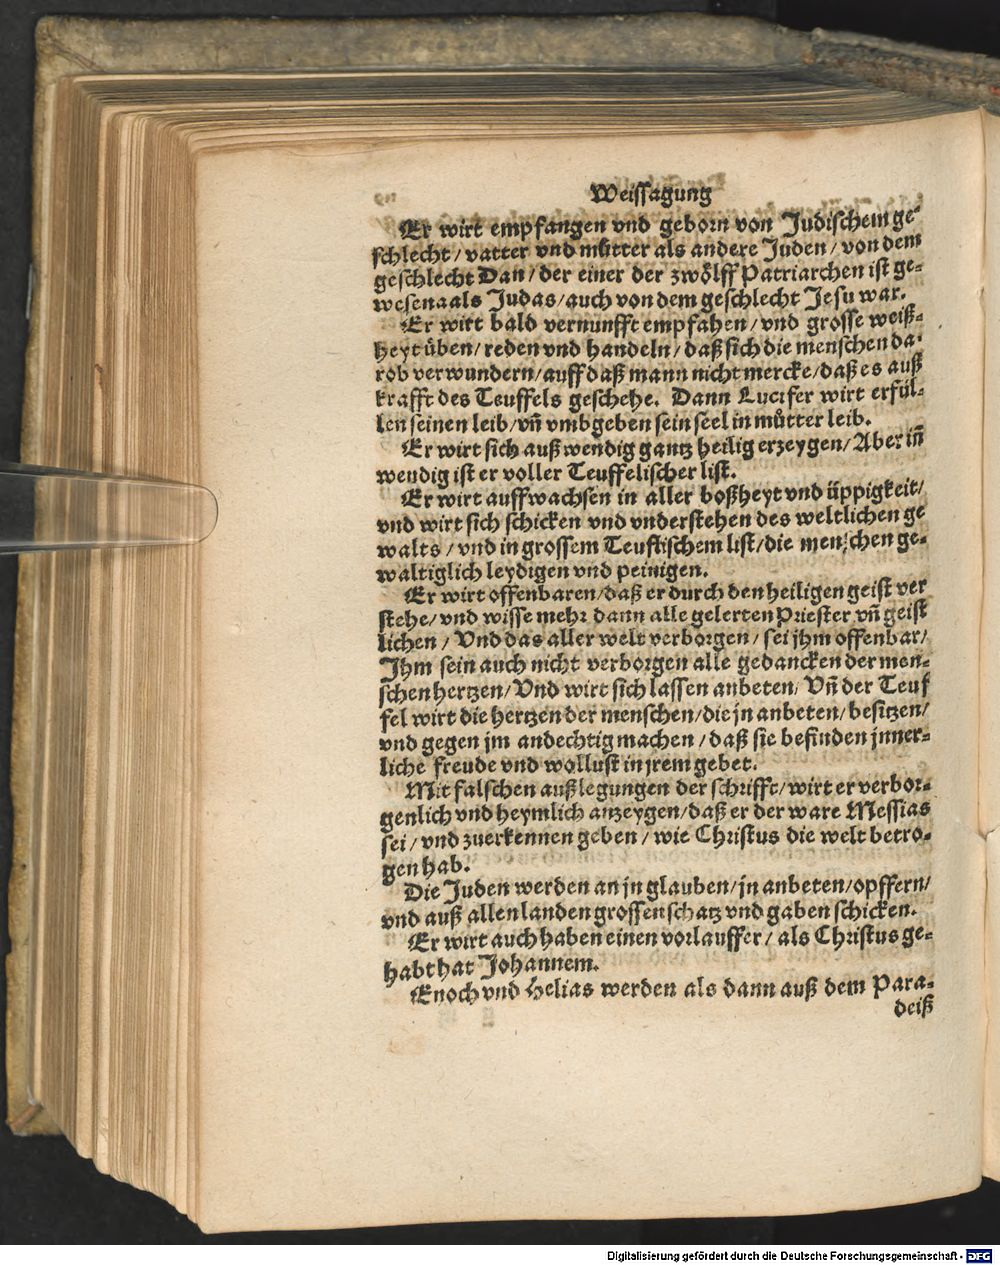 Weissagung
Er wirt empfangen vnd geborn von Judischem ge-
schlecht / vatter vnd můtter als andere Juden / von dem
geschlecht Dan / der einer der zwölff Patriarchen ist ge-
wesena als Judas / auch von dem geschlecht Jesu war.
Er wirt bald vernunfft empfahen / vnd grosse weiß-
heyt üben / reden vnd handeln / daß sich die menschen da-
rob verwundern / auff daß mann nicht mercke / daß es auß
krafft des Teuffels geschehe. Dann Lucifer wirt erfül-
len seinen leib / vñ vmbgeben sein seel in můtter leib.
Er wirt sich außwendig gantz heilig erzeygen / Aber iñ
wendig ist er voller Teuffelischer list.
Er wirt auffwachsen in aller boßheyt vnd üppigkeit /
vnd wirt sich schicken vnd vnderstehen des weltlichen ge
walts / vnd in grossem Teuflischem list / die menschen ge-
waltiglich leydigen vnd peinigen.
Er wirt offenbaren / daß er durch den heiligen geist ver
stehe / vnd wisse mehr dann alle gelerten Priester vñ geist
lichen / Vnd das aller welt verborgen / sei jhm offenbar /
Ihm sein auch nicht verborgen alle gedancken der men-
schen hertzen / Vnd wirt sich lassen anbeten / Vñ der Teuf
fel wirt die hertzen der menschen / die jn anbeten / besitzen /
vnd gegen jm andechtig machen / daß sie befinden jnner-
liche freude vnd wollust in jrem gebet.
Mit falschen außlegungen der schrifft / wirt er verbor-
genlich vnd heymlich anzeygen / daß er der ware Messias
sei / vnd zuerkennen geben / wie Christus die welt betro-
gen hab.
Die Juden werden an jn glauben / jn anbeten / opffern /
vnd auß allen landen grossen schatz vnd gaben schicken.
Er wirt auch haben einen vorlauffer / als Christus ge-
habt hat Johannem.
Enoch vnd Helias werden als dann auß dem Para-
deiß
Digitalisierung gefördert durch die Deutsche Forschungsgemeinschaft - DFG